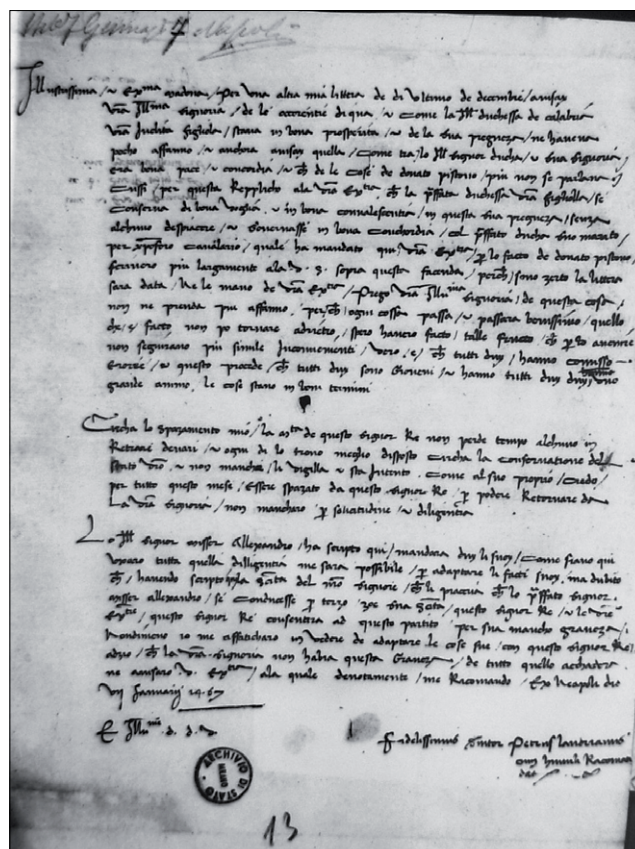 1467 Gennaro 7 Napoli
Illustrissima / et Ex.ma madona / Per una altra mia littera de di ultimo de decembre / avisay
v̄ra Ill.ma Signoria / de le occorrentie di qua / et Come la Ill. duchessa de calabria
v̄ra Inclita figliola / stava in bona prosperita / et de la sua pregneza / ne haveva
pocho affanno / et anchora avisay quella / Come tra lo Ill. Signor ducha / et sua Signoria /
era bona pace / et concordia / et ch̄ de le Cose de donato pistorio / piu non se parlava /
Cussi / per questa Repplicho ala v̄ra Ex.tia ch̄ la p̄fata duchessa v̄ra figliolla / se
Conserva di bona voglia / et in bona convalescentia / in questa sua pregneza / senza
alchuno despiacere / et Governasse in bona Conchordia / Col p̄fato ducha suo marito /
per xp̄oforo Cavalario / quale ha mandato qui v̄ra Ex.tia / p̄ lo facto de donato pistorio /
scrivero piu largamente ala v. S. sopra questa facenda / perch̄ / sono zerto la littera
sara data / ne le mane de v̄ra Ex.tia / Prego v̄ra Illu.ma Signoria / de questa cosa /
non ne prenda piu affanno / perch̄ / ogni cossa passa / et passara benissimo / quello
ch̄ / e / facto non po tornare adrieto / spero havero facto / talle fructo / ch̄ p̄ lo avenire
non seguirano piu simile Inconvenienti / vero / e / ch̄ tutti duy / hanno comisso
errore / et questo procede / ch̄ tutti duy sono Gioveni / et hanno tutti duy uno
grande animo / le cose stano in boni termini
Circha lo spazamento mio / la m.ta de questo Signor Re non perde tempo alchuno in
Retrare denari / et ogni di lo trovo meglio disposto Circha la Conservatione del
stato v̄ro / et non mancha / li vigilla et sta Intento / Come al suo proprio / Credo /
per tutto questo mese / Essere spazato da questo Signor Re / p̄ podere Retornare da
la v̄ra Signoria / non manchero p̄ solicitudine / et diligentia
Lo Ill. Signor misser Allexandro / ha scripto qui / mandara duy li suoy / Come siano qui
usaro tutta quella dilligentia me sara possibile / p̄ adaptare li facti suoy / ma dubito
ch̄ / havendo scripto la del Signore / ch̄ li piaceria ch̄ lo p̄fato Signor
misser allexandro / se Conducesse p̄ terzo / questo Signor Re / et le v̄re
Ex.tie / questo Signor Re consentira ad questo partito / per sua mancho graveza /
Nondimeno io me affaticharo in vedere de adaptare le cose sue / con questo Signor Re /
adzo / ch̄ la v̄ra Signoria non habia questa Graveza / de tutto quello achadera
ne avisaro v. Ex.tia / ala quale devotamente / me Racomando / Ex Neapoli die
vij Januarij 1467
E. Illu.me d. d. v.
Fidelissimus Servitor Petrus landrianus
cum humili Racoman
dat.
ARCHIVIO DI STATO
MILANO
13